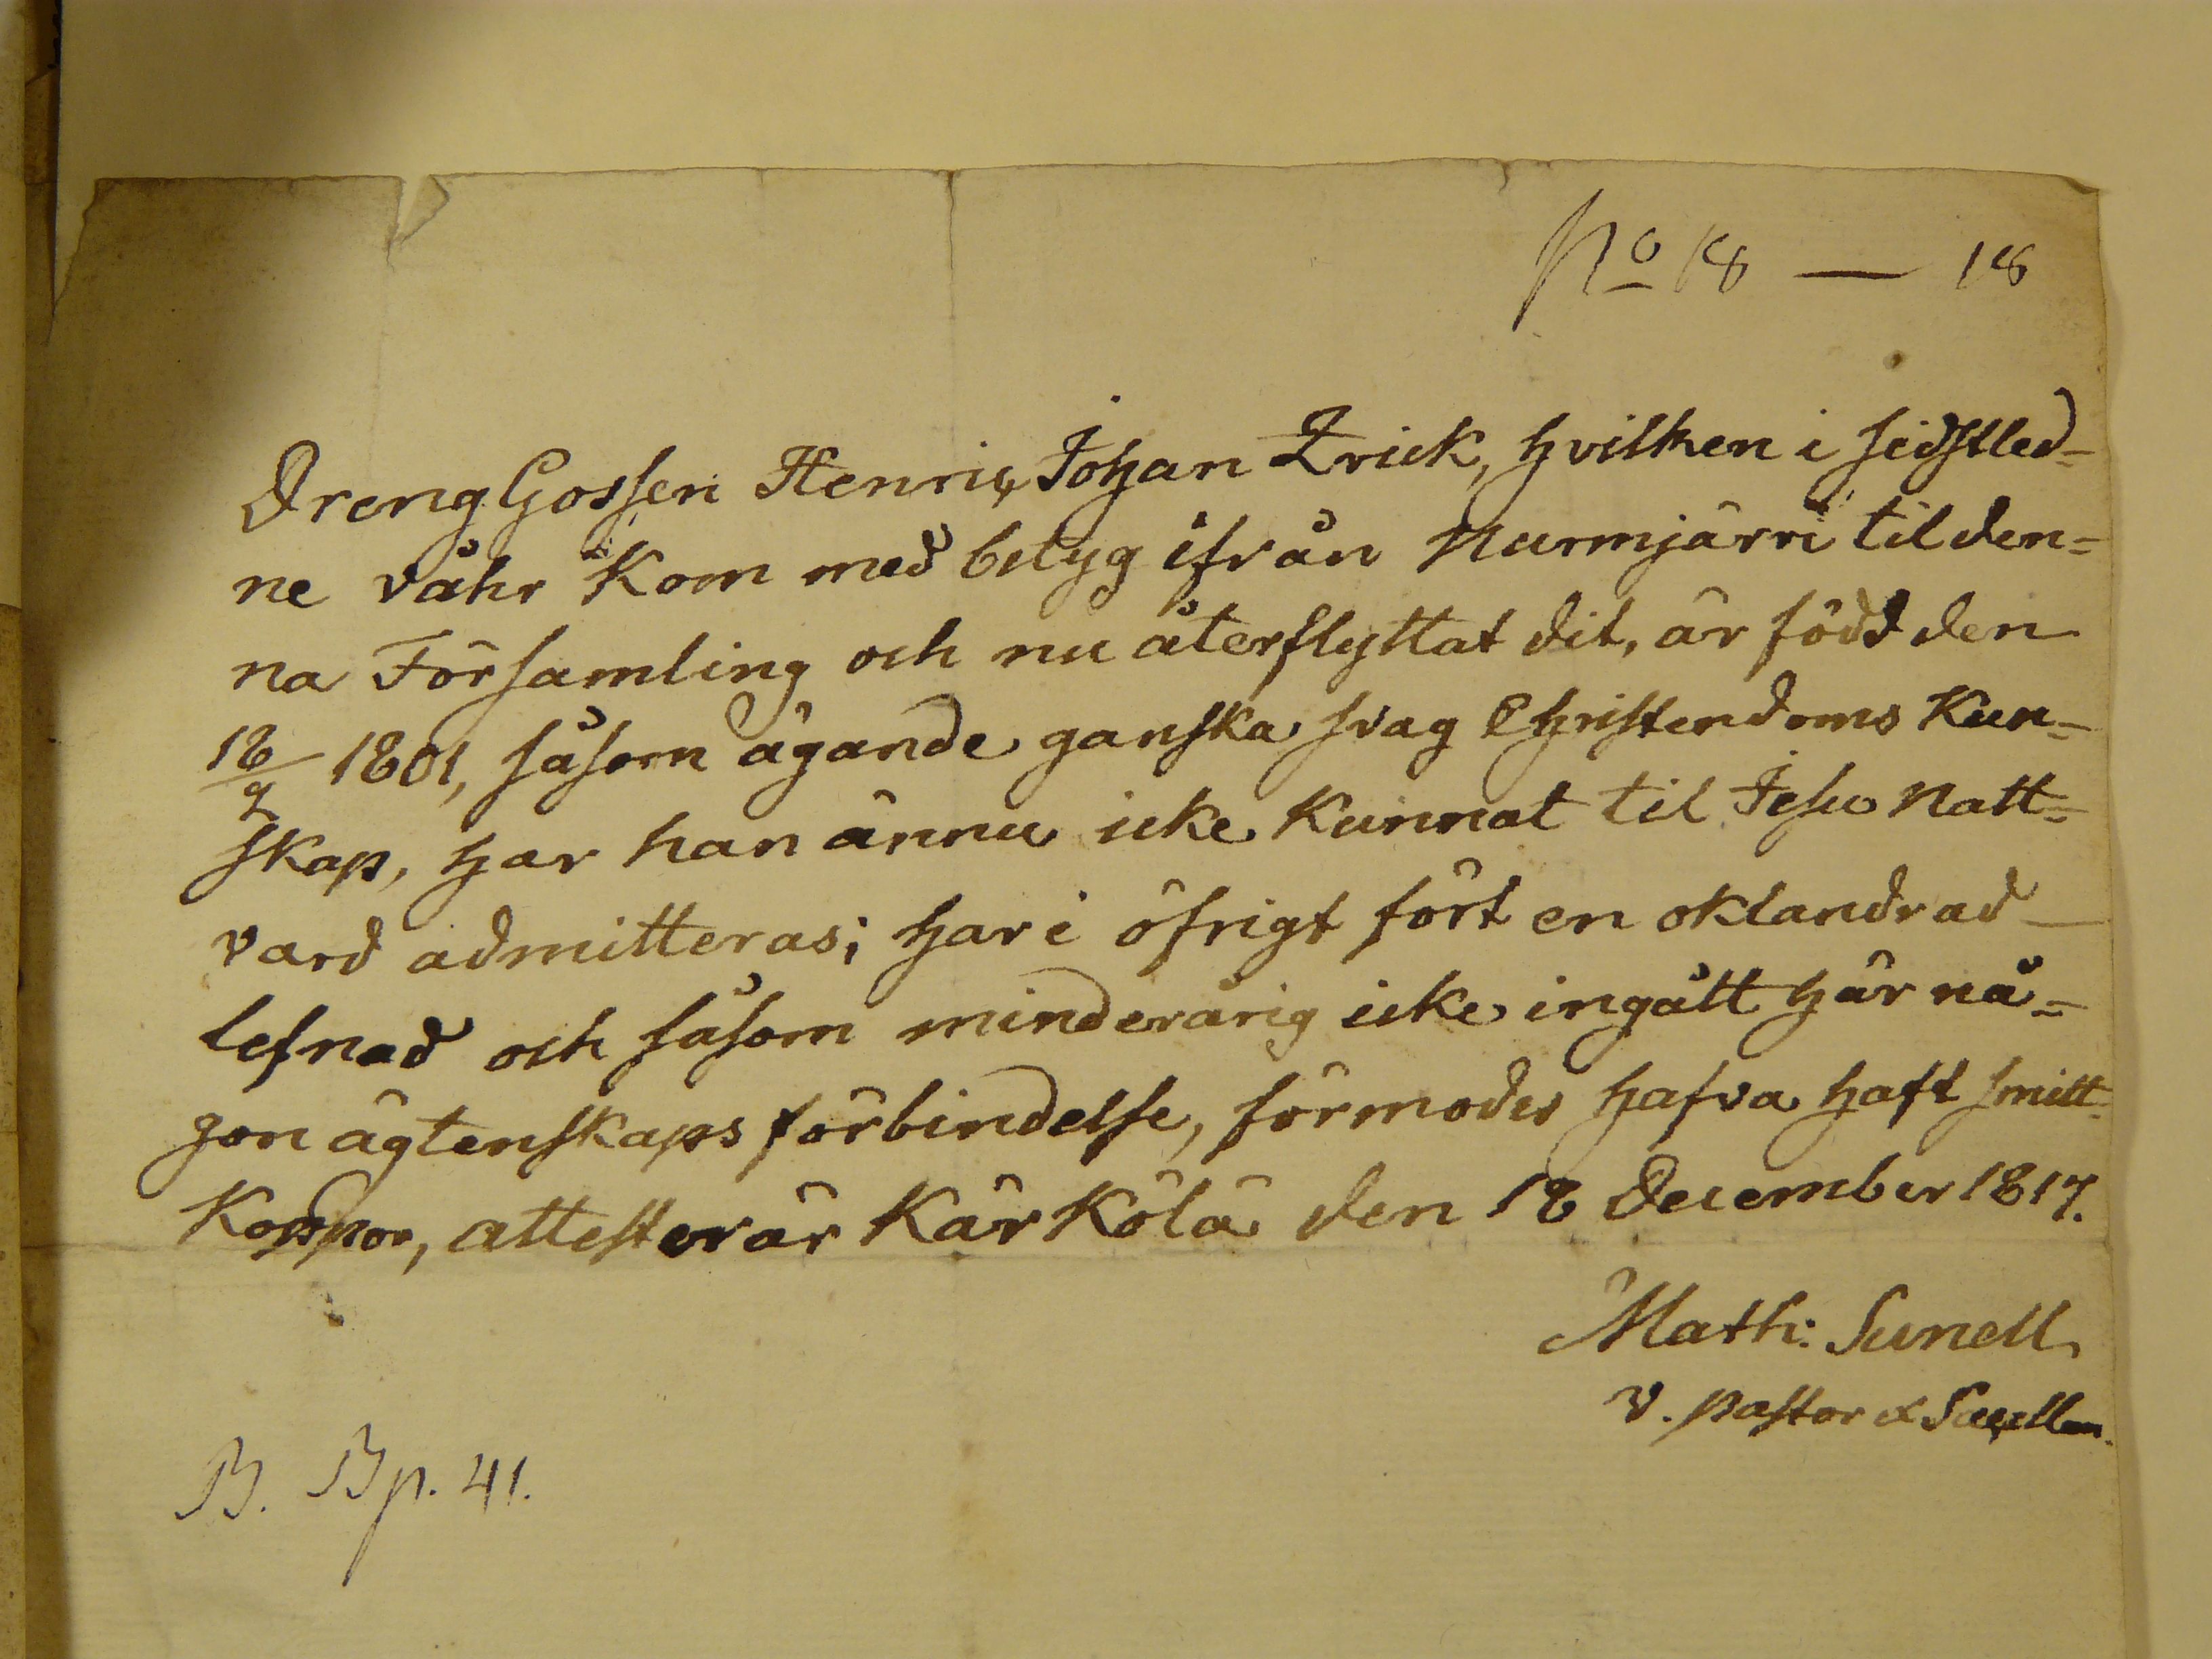 No 18 — 18
Dreng Gossen Henric Johan Erick, hvilken i sidstled-
ne våhr kom med betyg ifrån Nurmjärvi til den=
na Församling och nu återflyttat dit, är född den
18/9 1801, såsom ägande ganska svag Christendoms Kun-
skap, har han ännu icke kunnat til Jesu Natt=
vard admitteras; har i öfrigt fört en oklandrad
lefnad och såsom minderårig icke ingått här nå=
gon ägtenskaps förbindelse, förmodes hafva haft smitt-
koppor, attesterar Kärkölä den 18 December 1817.
Math: Sunell
V. Pastor & Sacellan.
B. B p. 41.